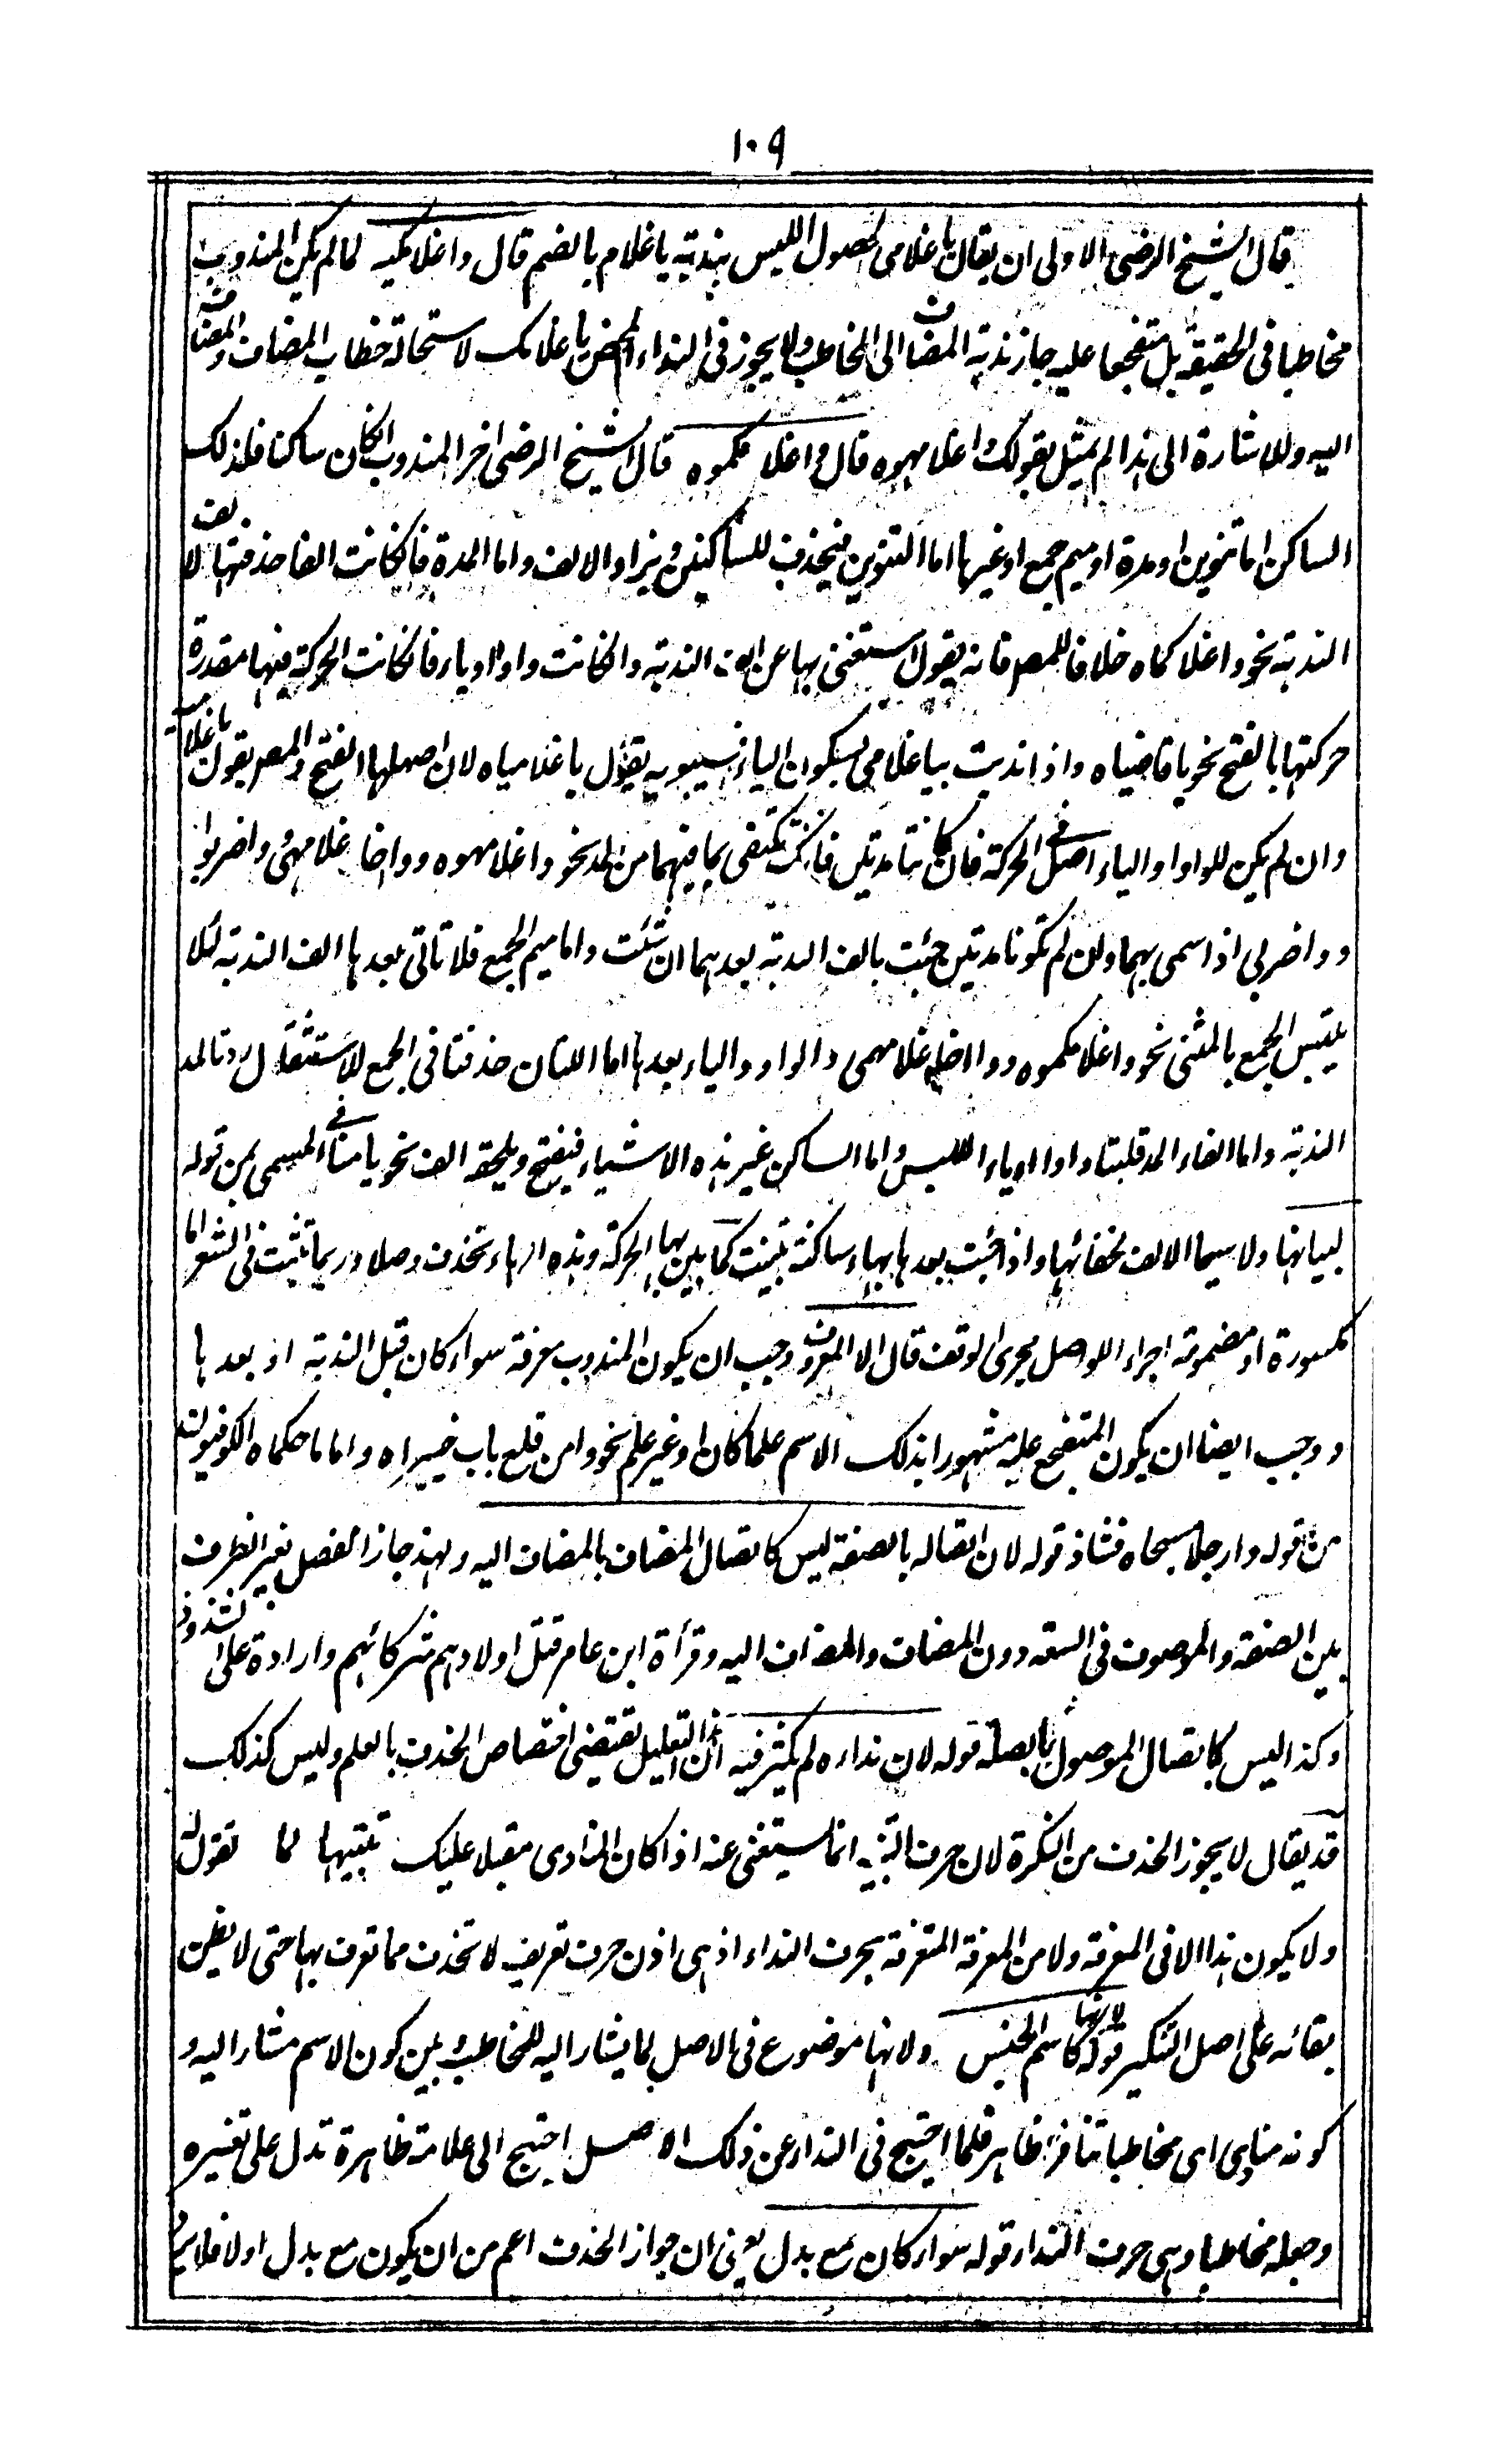 ١٠٩
قال الشيخ الرضى الاولى ان يقال يا غلامى لحصول اللبس بندبته يا غلام بالضم قال واغلامكيه لما لم يكن المندوب
مخاطبا فى الحقيقة بل متفجعا عليه جاز ندبة المضاف الى المخاطب ولا يجوز فى النداء المحض يا غلامك لاستحالة خطاب المضاف والمضاف
اليه وللاشارة الى هذا لم يمثل بقولك واغلامهوه قال واغلامكموه قال الشيخ الرضى اخر المندوب انكان ساكنا فلذلك
الساكن اما تنوين او مدة او ميم جمع او غيرها اما التنوين فيحذف للساكنين ويزاد الالف واما المدة فانكانت الفا حذفتها لالف
الندبة نحو واغلاماه خلافا للمصر فانه يقول استغنى بها عن الف الندبة وانكانت واوا او ياء فانكانت الحركة فيها مقدرة
حركتها بالفتح نحو يا قاضياه واذا ندبت بيا غلامى بسكون الياء فسيبويه يقول يا غلامياه لان اصلها الفتح والمصر يقول يا غلاميه
وان لم يكن للواو او الياء اصل فى الحركة فان كانتا مدتين فانك تكتفى بما فيهما من المد نحو واغلامهوه وواخا غلامهى واضربوا
وواضربى اذا سمى بهما وان لم تكونا مدتين جئت بالف الندبة بعدهما ان شئت واما ميم الجمع فلا تأتى بعدها الف الندبة لئلا
يلتبس الجمع بالمثنى نحو واغلامكموه وواخا غلامهمى والواو والياء بعدها اما اللتان حذفتا فى الجمع للاستثقال ردتا لمد
الندبة واما الفاء المد قلبتا واوا او ياء اللبس واما الساكن غير هذه الاشياء فيفتح ويلحقه الف نحو يا مناه فى المسمى بمن قوله
لبيانها ولا سيما الالف لخفائها واذا جئت بعدها بهاء ساكنة تبينت كما بين بها الحركة وهذه الهاء تحذف وصلا وربما تثبت فى الشعر اما
مكسورة او مضمومة اجراء للوصل مجرى الوقف قال الا المعروف وجب ان يكون المندوب معرفة سواء كان قبل الندبة او بعدها
ووجب ايضا ان يكون المتفجع عليه مشهورا بذلك الاسم علما كان او غير علم نحو وامن قلع باب خيبراه واما ما حكماه الكوفيون
من قوله وارجلا مسجاه فشاذ قوله لان اتصاله بالصفة ليس كاتصال المضاف بالمضاف اليه ولهذ جاز الفصل بغير الظرف
بين الصفة والموصوف فى السعة دون المضاف والمضاف اليه وقرأة ابن عامر قتل اولادهم شركائهم وارادة على الشذوذ
وكذا ليس كاتصال الموصول بالصلة قوله لان نداءه لم يكثر فيه ان هذا التعليل يقتضى اختصاص الحذف بالعلم وليس كذلك
قد يقال لا يجوز الحذف من النكرة لان حرف التنبيه انما يستغنى عنه اذا كان المنادى مقبلا عليك تنبيها لما تقول له
ولا يكون هذا الا فى المعرفة ولا من المعرفة المتعرفة بحرف النداء اذ هى اذن حرف تعريف لا تحذف مما تعرف بها حتى لا يظن
بقائه على اصل التنكير قوله لانها كاسم الجنس ولانها موضوع فى الاصل لما يشار اليه للمخاطب وبين كون الاسم مشارا اليه و
كونه منادى اى مخاطبا تنافر ظاهر فلما احتيج فى النداء عن ذلك الاصل احتيج الى علامة ظاهرة تدل على تغييره
وجعله مخاطبا وهى حرف النداء قوله سواء كان مع بدل يعنى ان جواز الحذف اعم من ان يكون مع بدل اولا فلا